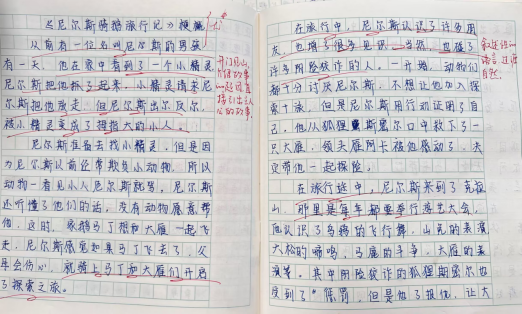 《尼尔斯骑鹅旅行记》梗概
从前有一位名叫尼尔斯的男孩
有一天，他在家中看到了一个小精灵
尼尔斯把他抓了起来，小精灵请求尼
尔斯把他放走，但尼尔斯出尔反尔，
被小精灵变成了拇指大的小人。
尼尔斯准备去找小精灵，但是因
为尼尔斯以前经常欺负小动物，所以
动物一看见小人儿尼尔斯就骂，尼尔斯
还听懂了他们的话，没有动物愿意帮
他，这时，家鹅马丁想和大雁一起飞
走，尼尔斯感觉如果马丁飞去了，父
母会伤心，就骑上马丁和大雁们开启
了探索之旅。
开门见山，
故事
的起因直
接引出主人
公的故事
在旅行中，尼尔斯认识了许多朋
友，也增了很多见识，当然，也碰了
许多阴险狡诈的人。一开始，动物们
都十分讨厌尼尔斯，不想让他加入探
索小队，但是尼尔斯用行动证明了自
己，他从狐狸斯密尔口中救下了一
只大雁，领头雁阿卡被他感动了，决
定带他一起探险。
在旅行途中，尼尔斯来到了克拉
山，那里是每年都要举行游艺大会，
他认识了乌鸦的飞行舞，山兔的表演
大松的啼鸣，马鹿的斗争，大雁的表
演等。其中阴险狡诈的狐狸斯密尔也
受到了惩罚，但是他了报仇，让大
语言
自然